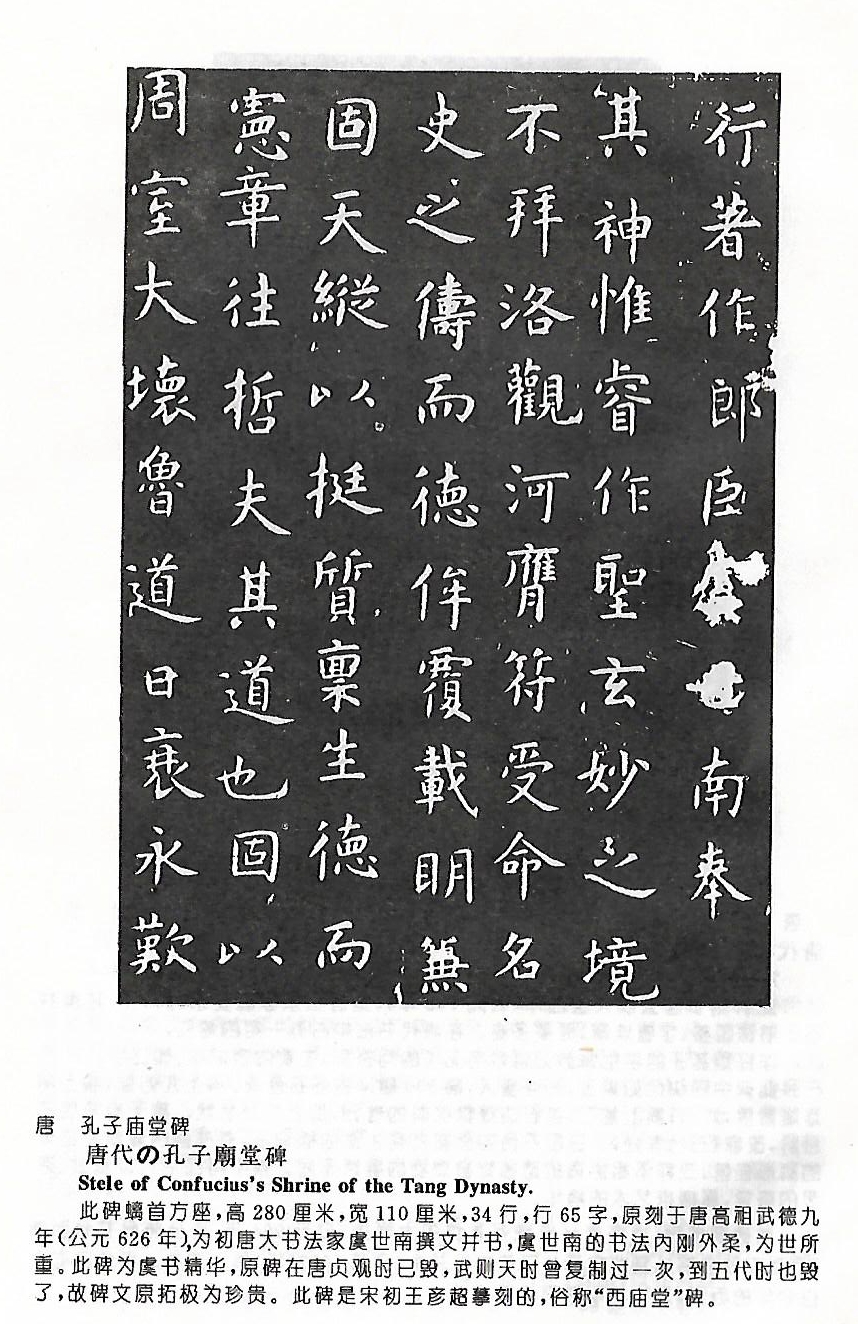 行著作郎臣虞世南奉
其神惟睿作聖玄妙之境
不拜洛觀河膺符受命名
史之儔而德侔覆載明無
固天縱以挺質禀生德而
憲章往哲夫其道也固以
周室大壞魯道日衰永歎
唐 孔子庙堂碑
唐代の孔子廟堂碑
Stele of Confucius's Shrine of the Tang Dynasty.
此碑螭首方座，高 280 厘米，宽 110 厘米，34 行，行 65 字，原刻于唐高祖武德九
年(公元 626 年)，为初唐大书法家虞世南撰文并书，虞世南的书法内刚外柔，为世所
重。此碑为虞书精华，原碑在唐贞观时已毁，武则天时曾复制过一次，到五代时也毁
了，故碑文原拓极为珍贵。此碑是宋初王彦超摹刻的，俗称“西庙堂”碑。